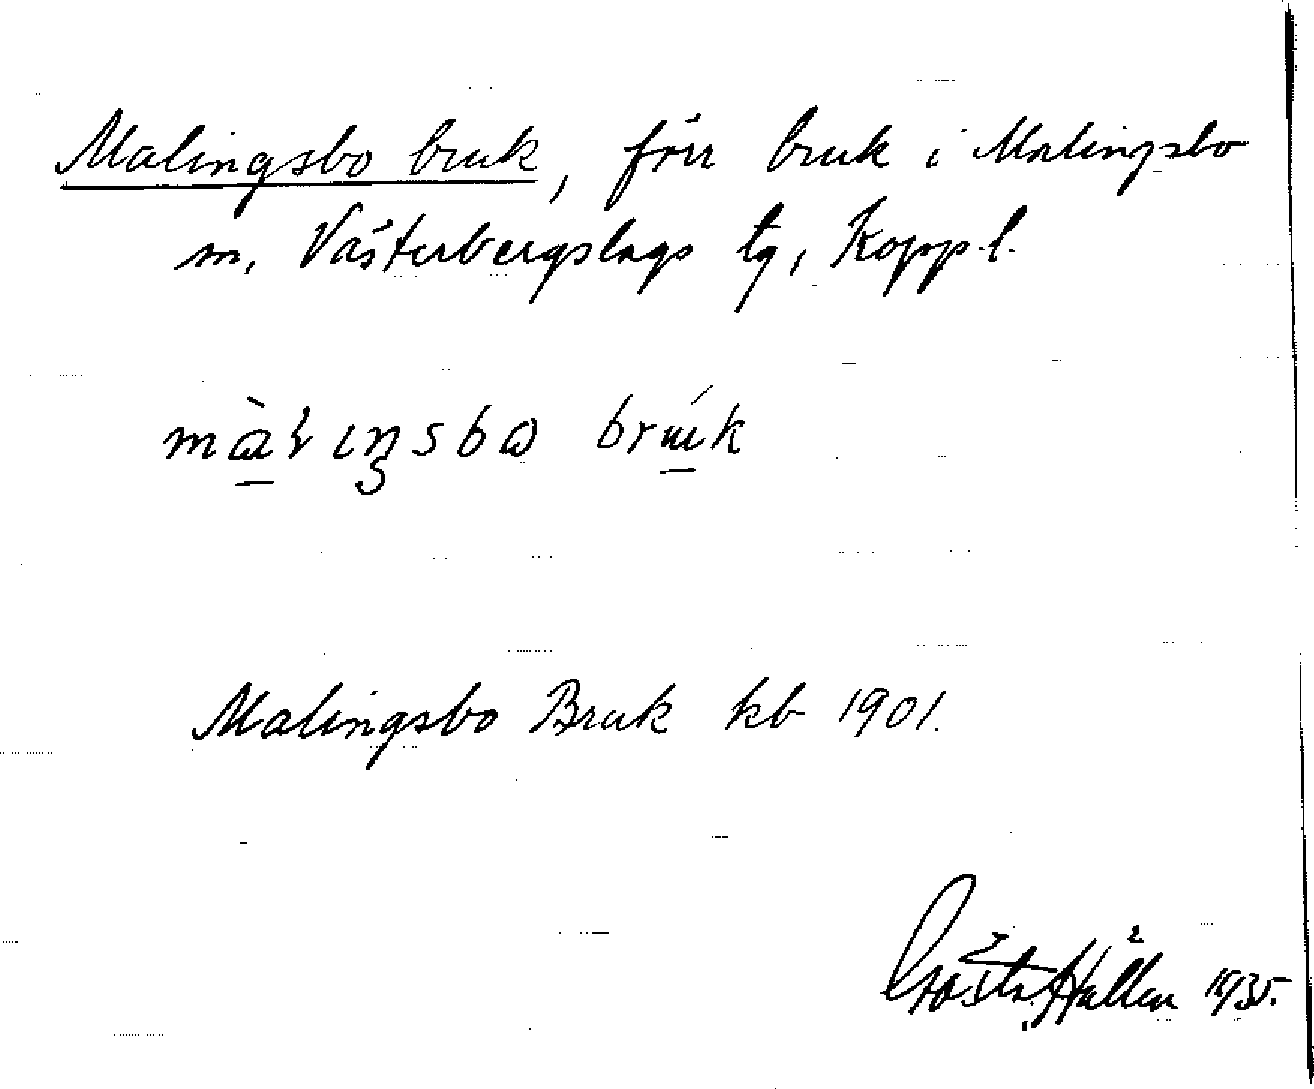 Malingsbo bruk, förr bruk i Malingsbo
sn, Västerbergslags tg, Kopp.l.
bruk
Malingsbo Bruk kb 1901.
Gösta Hällen 1935.